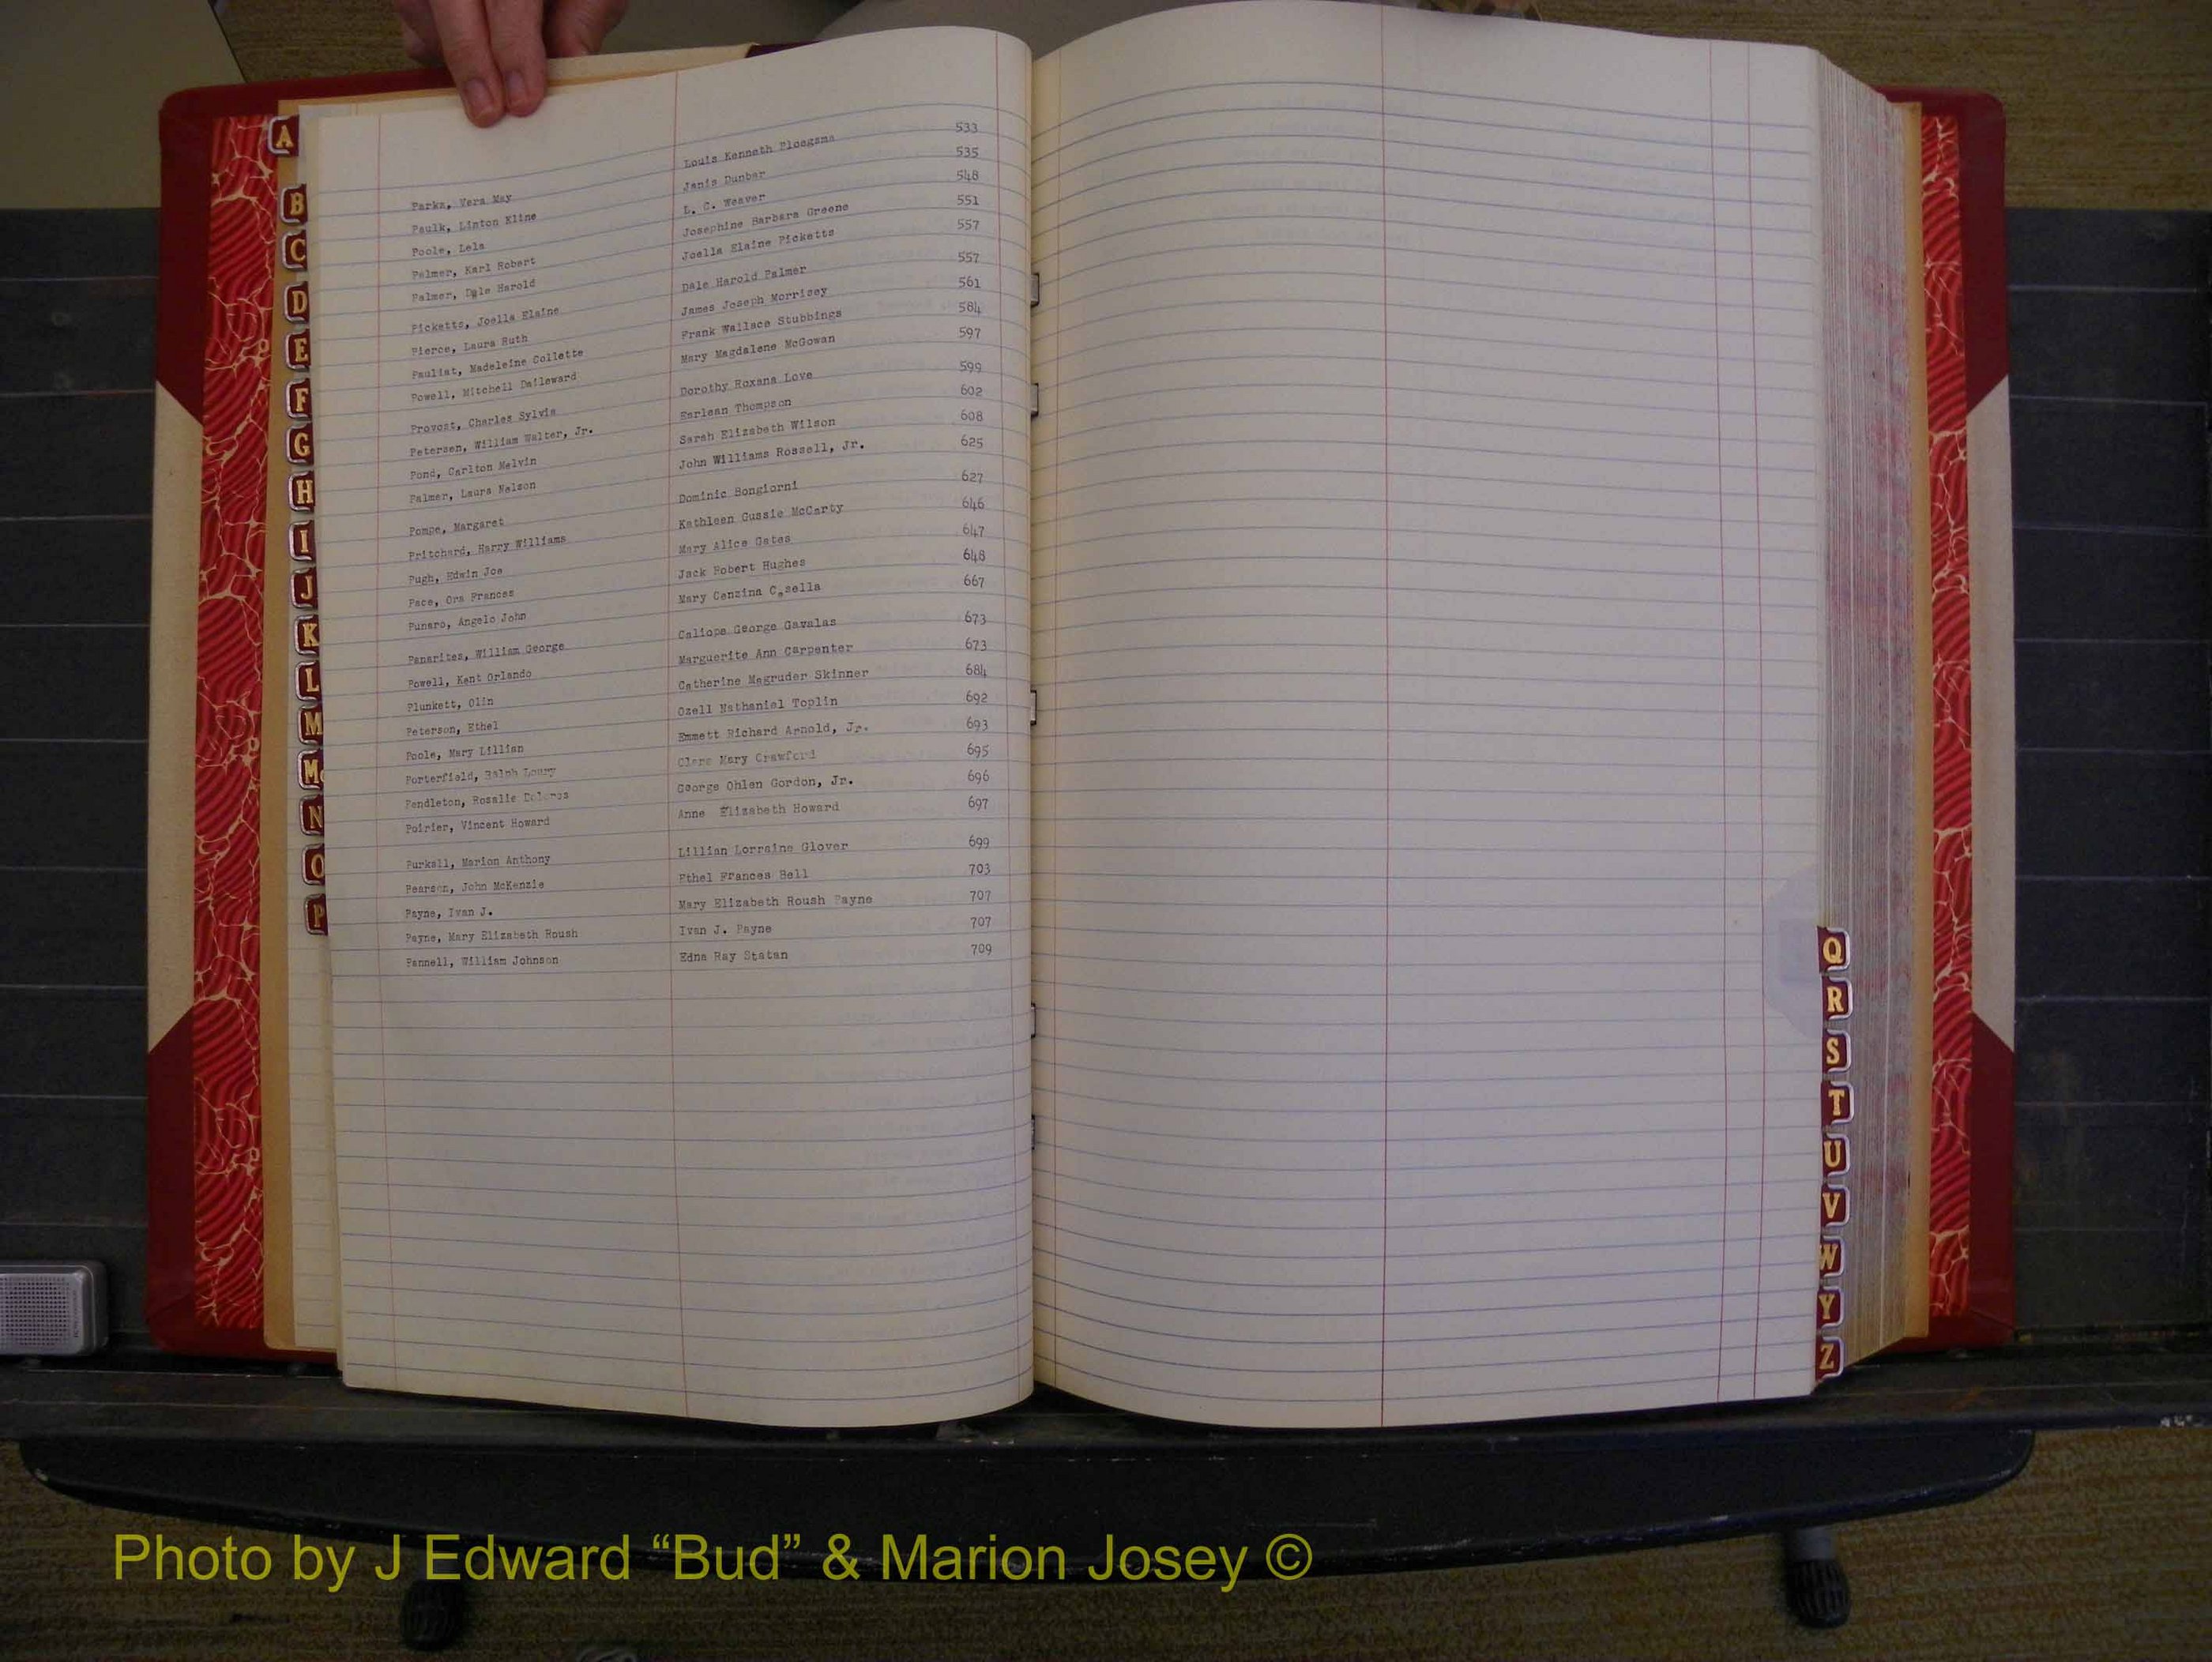 Parks, Vera May Louis Kenneth Ploegsma 533
Paulk, Linton Kline Janis Dunbar 535
Poole, Lela L. C. Weaver 548
Palmer, Karl Robert Josephine Barbara Greene 551
Palmer, Dale Harold Joella Elaine Picketts 557
Picketts, Joella Elaine Dale Harold Palmer 557
Pierce, Laura Ruth James Joseph Morrisey 561
Pauliat, Madeleine Collette Frank Wallace Stubbings 584
Powell, Mitchell Mary Magdalene McGowan 597
Provost, Charles Sylvia Dorothy Roxana Love 599
Petersen, William Walter, Jr. Earlean Thompson 602
Pond, Carlton Melvin Sarah Elizabeth Wilson 608
Palmer, Laura Nelson John Williams Rossell, Jr. 625
Pompe, Margaret Dominic Bongiorni 627
Pritchard, Harry Williams Kathleen Gussie McCarty 646
Pugh, Edwin Joe Mary Alice Gates 647
Pace, Ora Frances Jack Robert Hughes 648
Punaro, Angelo John Mary Cenzina Casella 667
Panarites, William George Caliope George Gavalas 673
Powell, Kent Orlando Marguerite Ann Carpenter 673
Plunkett, Olin Catherine Magruder Skinner 684
Peterson, Ethel Ozell Nathaniel Toplin 692
Poole, Mary Lillian Emmett Richard Arnold, Jr. 693
Porterfield, Ralph Lowry Clara Mary Crawford 695
Pendleton, Rosalie Dolores George Ohlen Gordon, Jr. 696
Poirier, Vincent Howard Anne Elizabeth Howard 697
Purkall, Marion Anthony Lillian Lorraine Glover 699
Pearson, John McKenzie Ethel Frances Bell 703
Payne, Ivan J. Mary Elizabeth Roush Payne 707
Payne, Mary Elizabeth Roush Ivan J. Payne 707
Pannell, William Johnson Edna Ray Statan 709
A
B
C
D
E
F
G
H
I
J
K
L
M
Mc
N
O
P
Q
R
S
T
U
V
W
Y
Z
Photo by J Edward “Bud” & Marion Josey ©